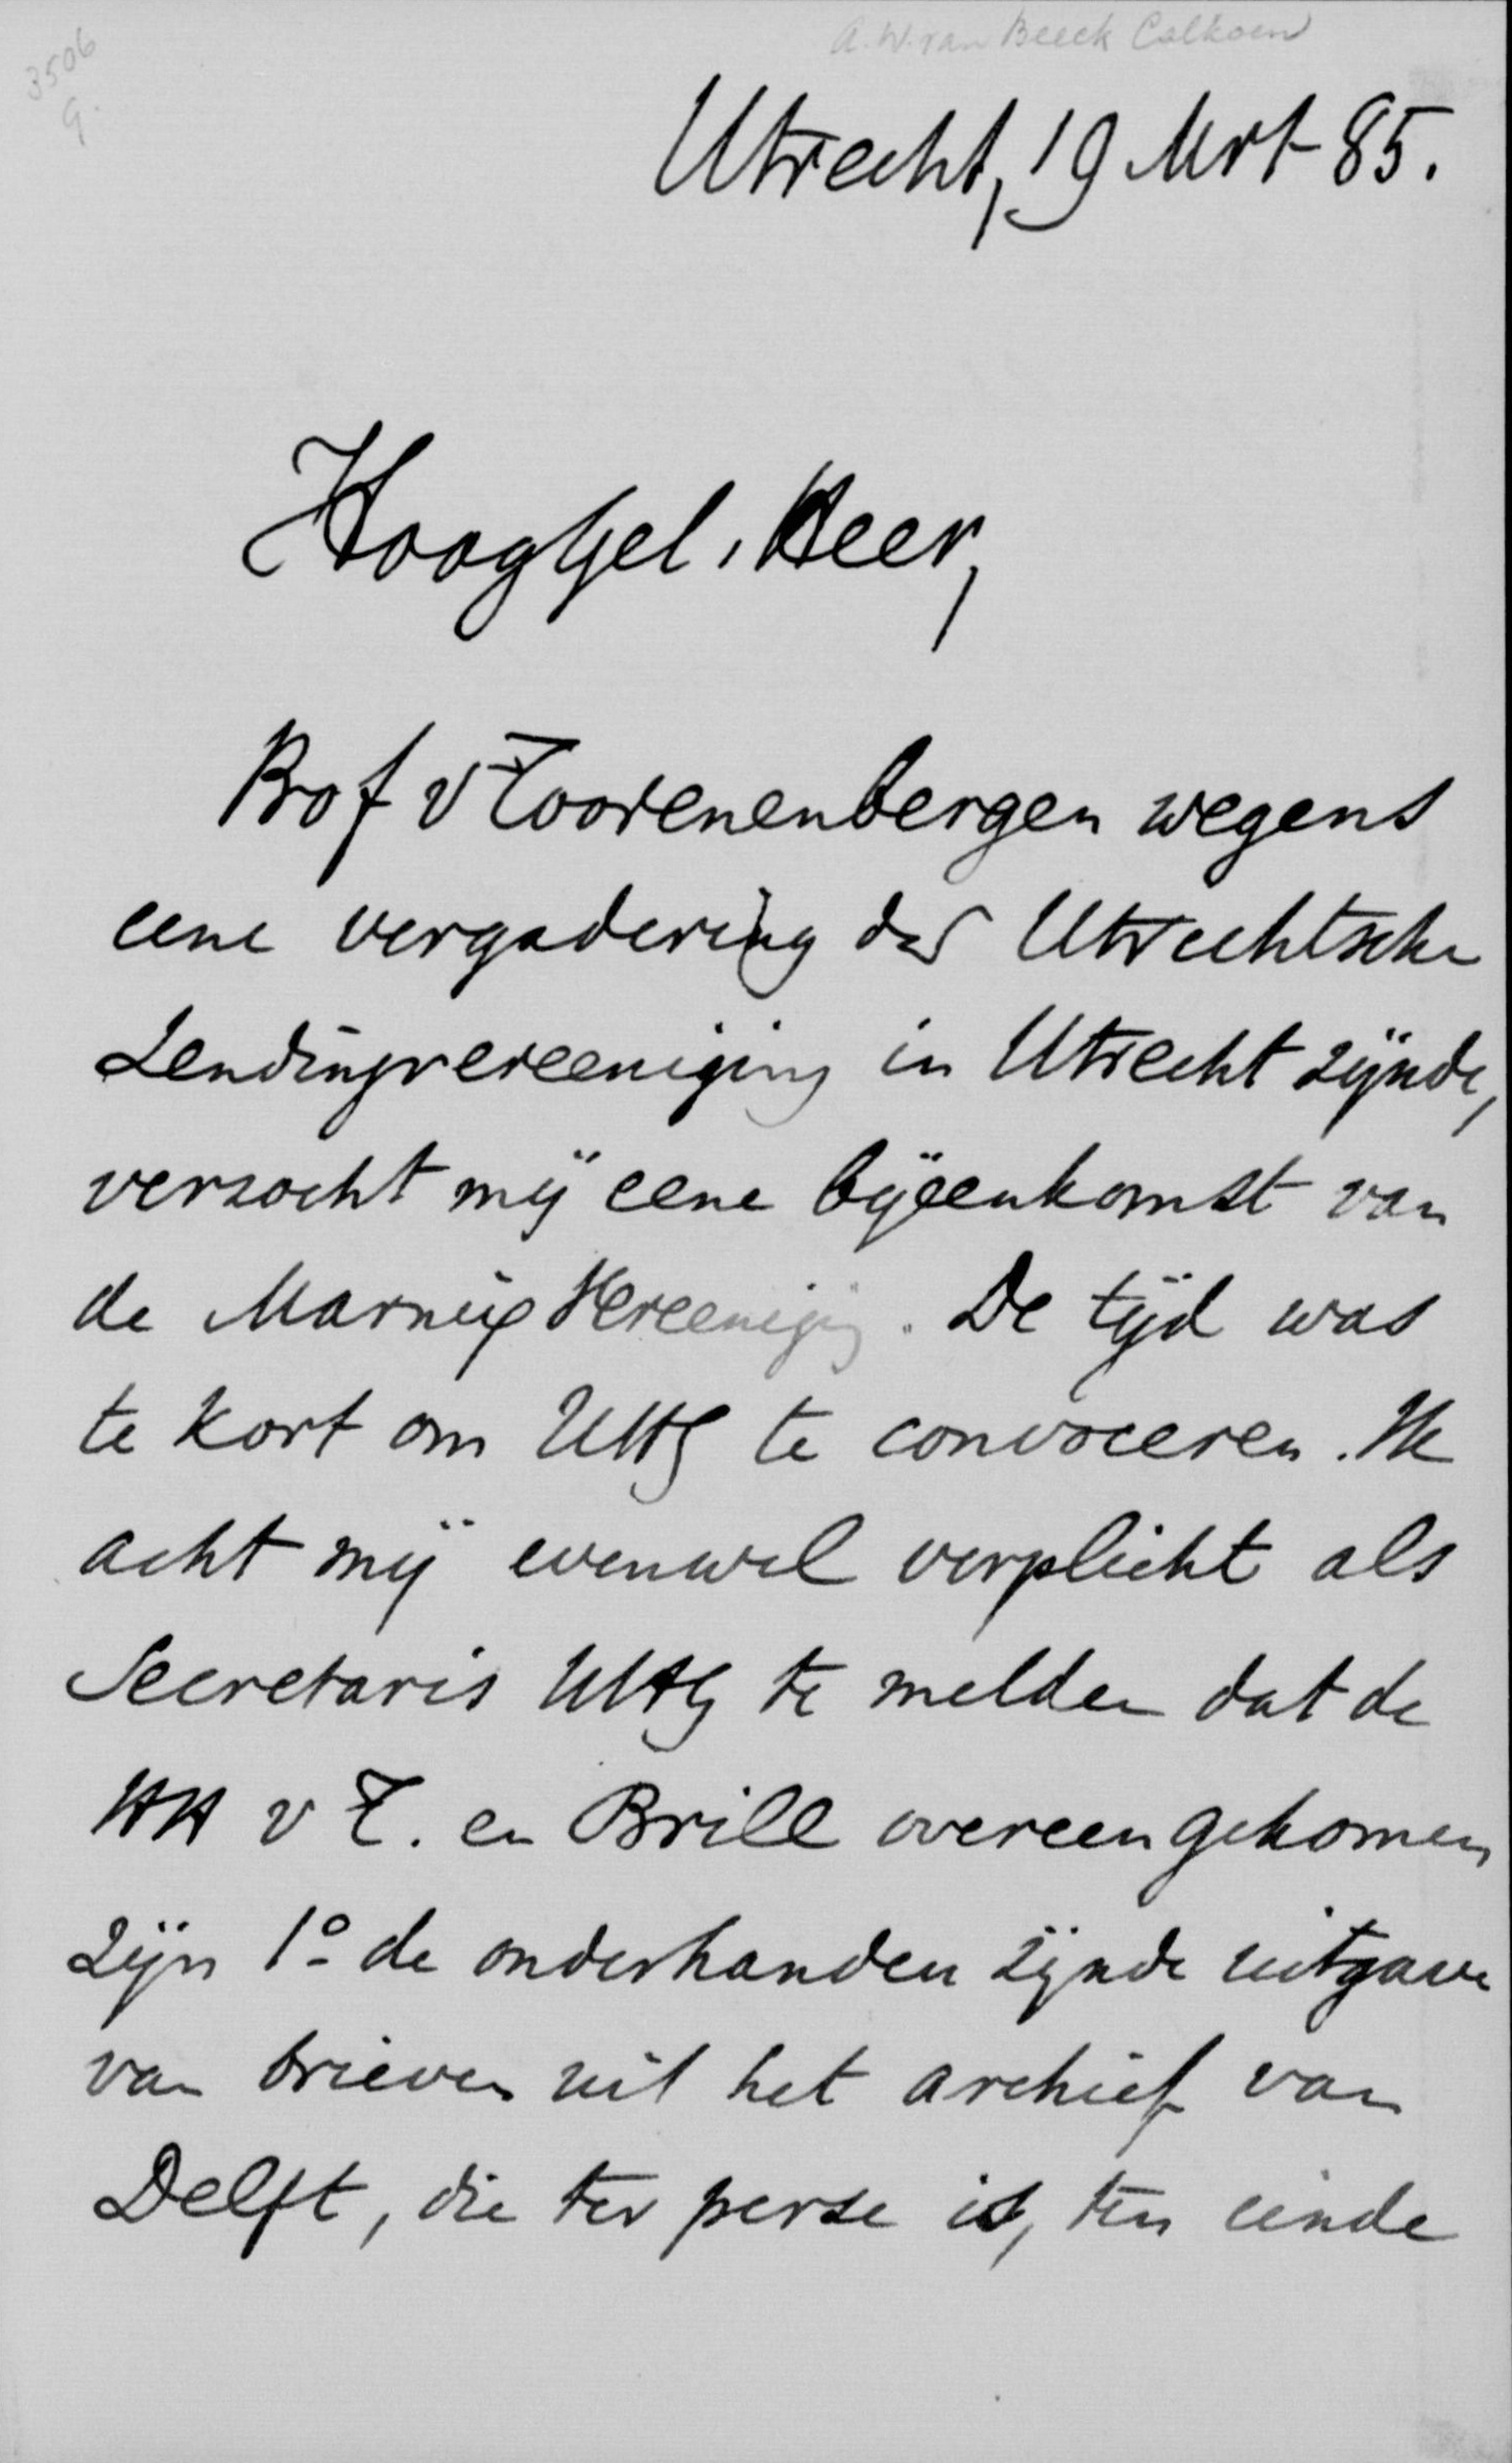 A. W. van Beeck Calkoen
3506
9.
Utrecht, 19 Mrt 85.
HoogGel. Heer,
Prof v Toorenenbergen wegens
eene vergadering der Utrechtsche
Zendingsvereeniging in Utrecht zijnde,
verzocht mij eene bijeenkomst van
de Marnix Vereeniging. De tijd was
te kort om UHG te convoceren. Ik
acht mij evenwel verplicht als
Secretaris UHG te melden dat de
HH v T. en Brill overeengekomen
zijn 1º de onderhanden zijnde uitgave
van brieven uit het archief van
Delft, die ter perse is, ten einde